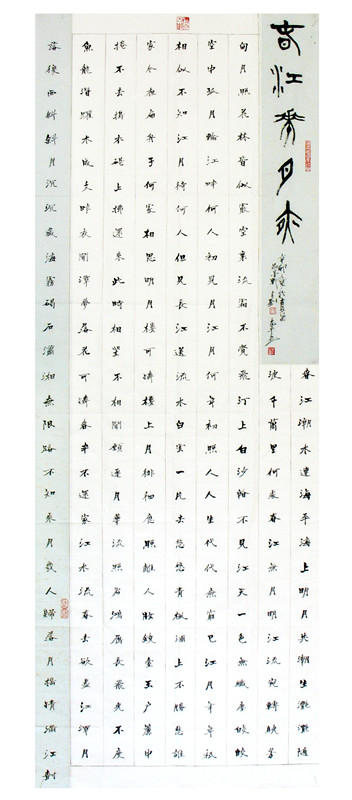 春江花月夜
春江潮水連海平海上明月共潮生灩灩隨
波千萬里何處春江無月明江流宛轉繞芳
甸月照花林皆似霰空裏流霜不覺飛汀上白沙看不見江天一色無纖塵皎皎
空中孤月輪江畔何人初見月江月何年初照人人生代代無窮已江月年年祇
相似不知江月待何人但見長江送流水白雲一片去悠悠青楓浦上不勝愁誰
家今夜扁舟子何處相思明月樓可憐樓上月徘徊應照離人妝鏡臺玉户簾中
捲不去擣衣碪上拂還來此時相望不相聞願逐月華流照君鴻雁長飛光不度
魚龍潛躍水成文昨夜閒潭夢落花可憐春半不還家江水流春去欲盡江潭月
落復西斜斜月沉沉藏海霧碣石瀟湘無限路不知乘月幾人歸落月搖情滿江樹